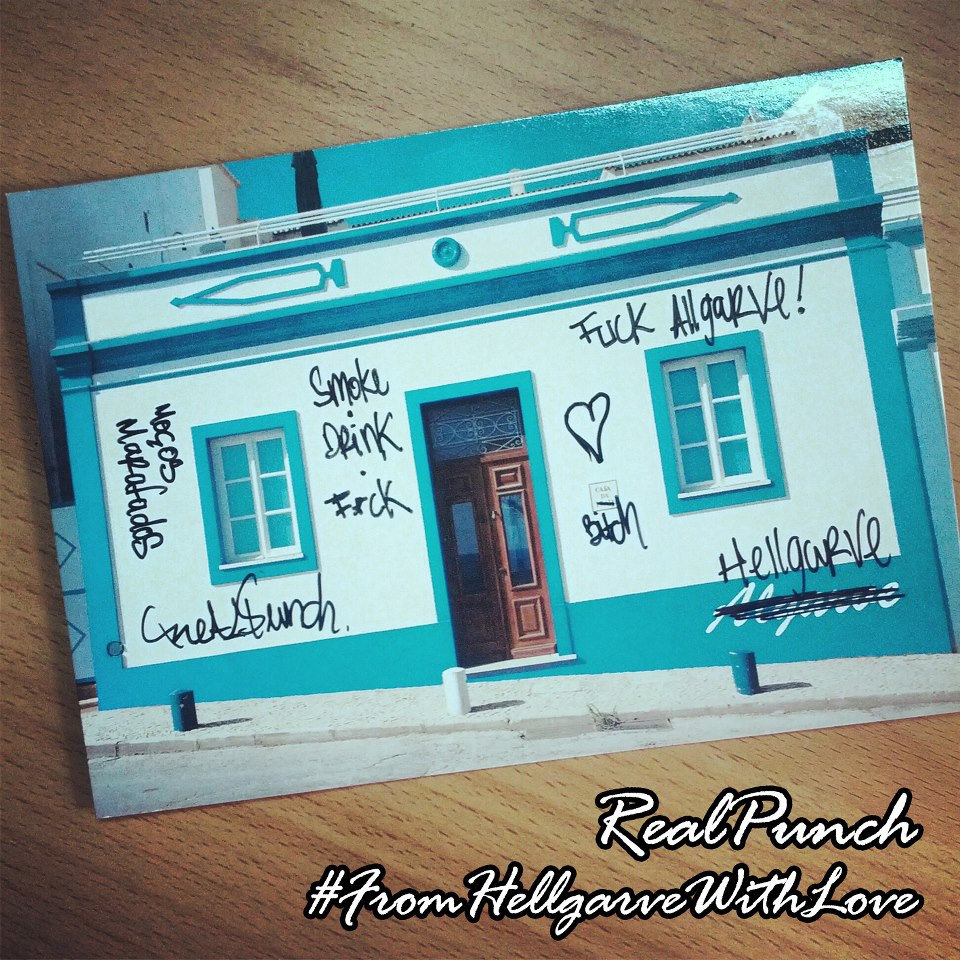 Fuck Allgarve!
Smoke
.
Drink
.
Fuck
Moços
Marafados
CASA
DA
Bitch
Hellgarve
Algarve
RealPunch
#FromHellgarveWithLove